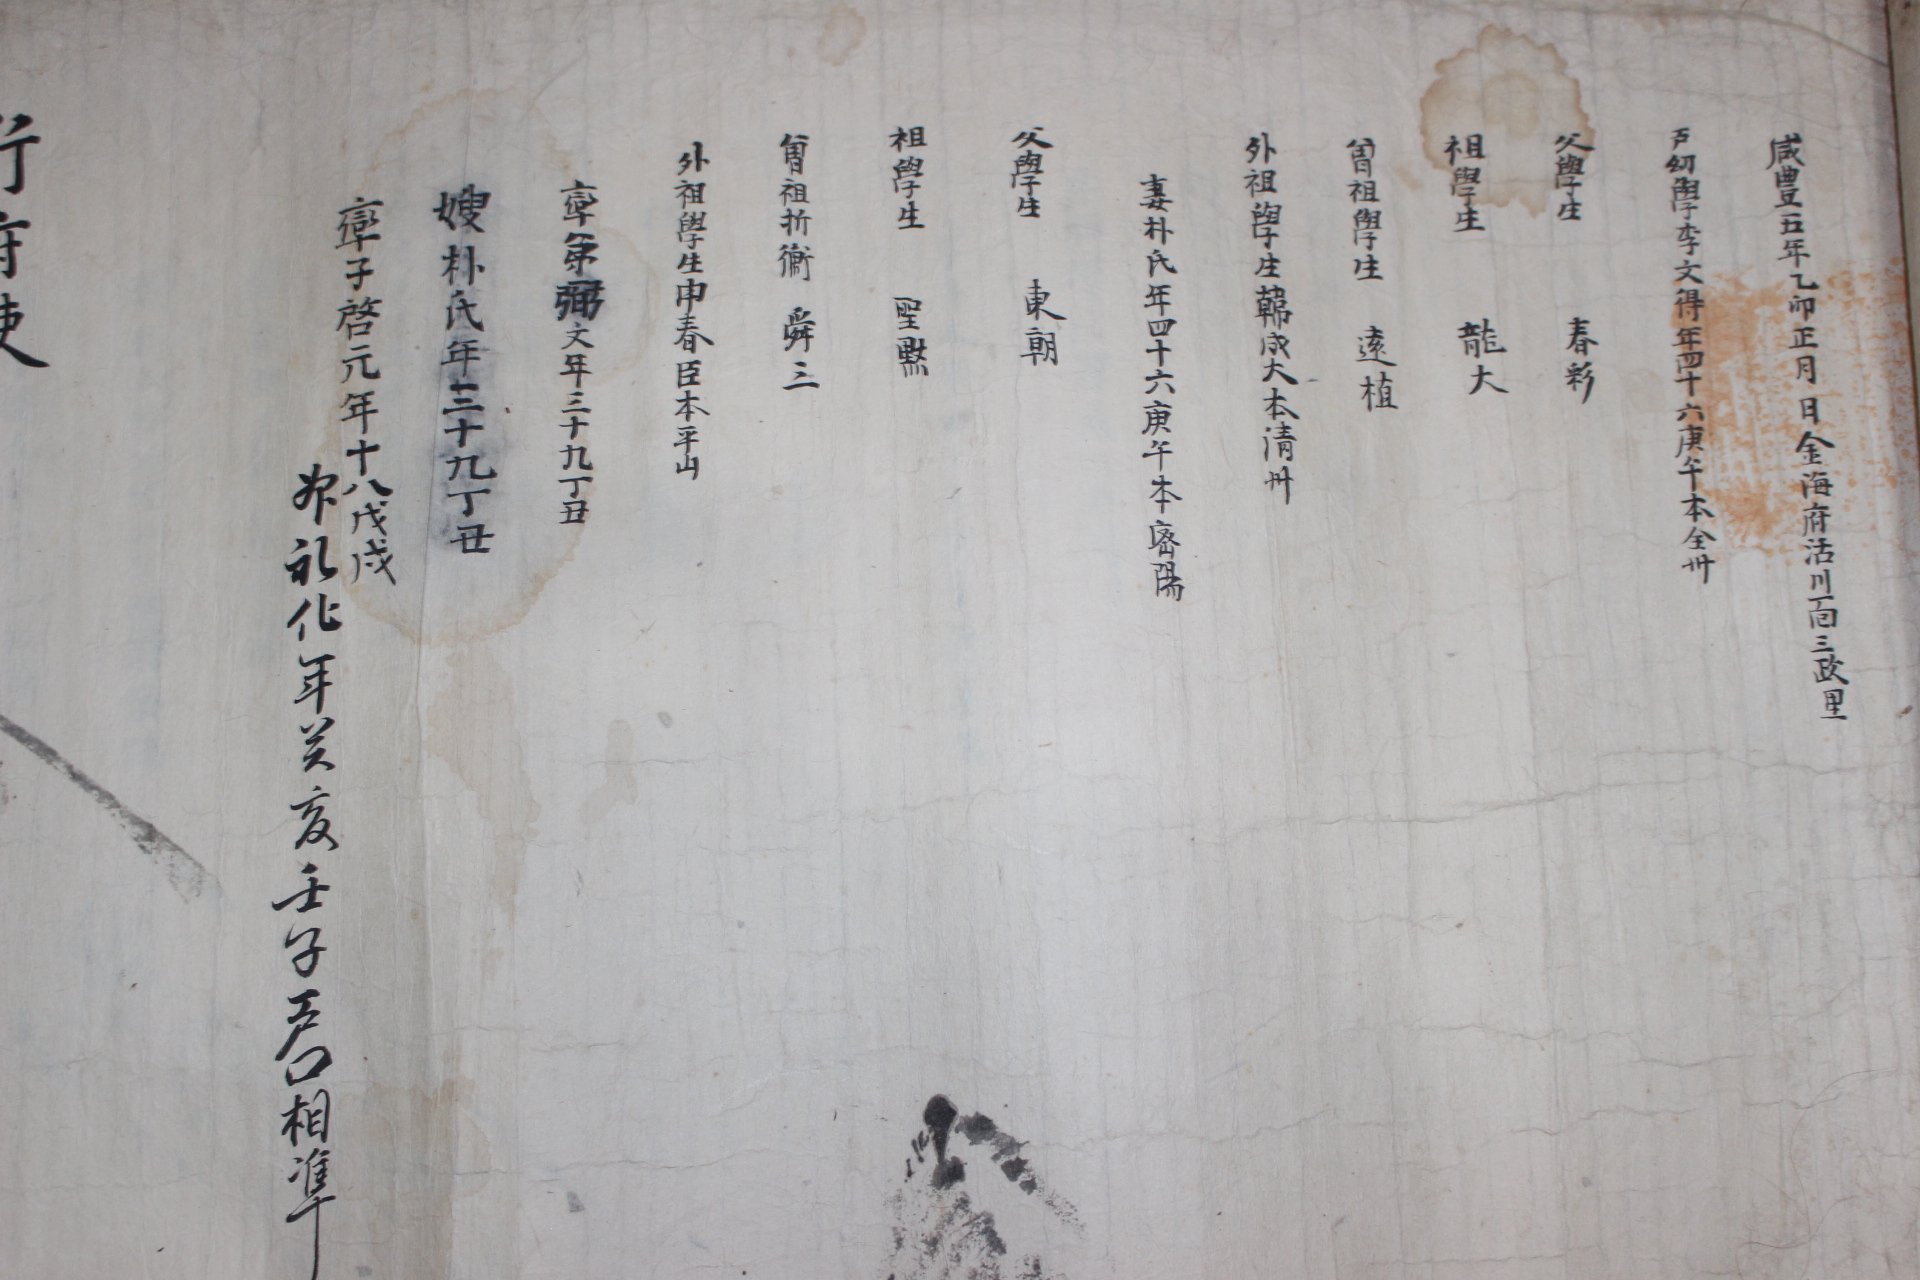 咸豊五年乙卯正月 日金海府活川面三政里
戶幼學李文得年四十六庚午本全州
父學生 春彩
祖學生 龍大
曾祖學生 遠植
外祖學生韓成大本淸州
妻朴氏年四十六庚午本密陽
父學生 東朝
祖學生 聖默
曾祖折衝 舜三
外祖學生申春臣本平山
率弟弼文年三十九丁丑
嫂朴氏年三十九丁丑
率子啓元年十八戊戌
奴礼化年癸亥壬子戶口相準
行府使